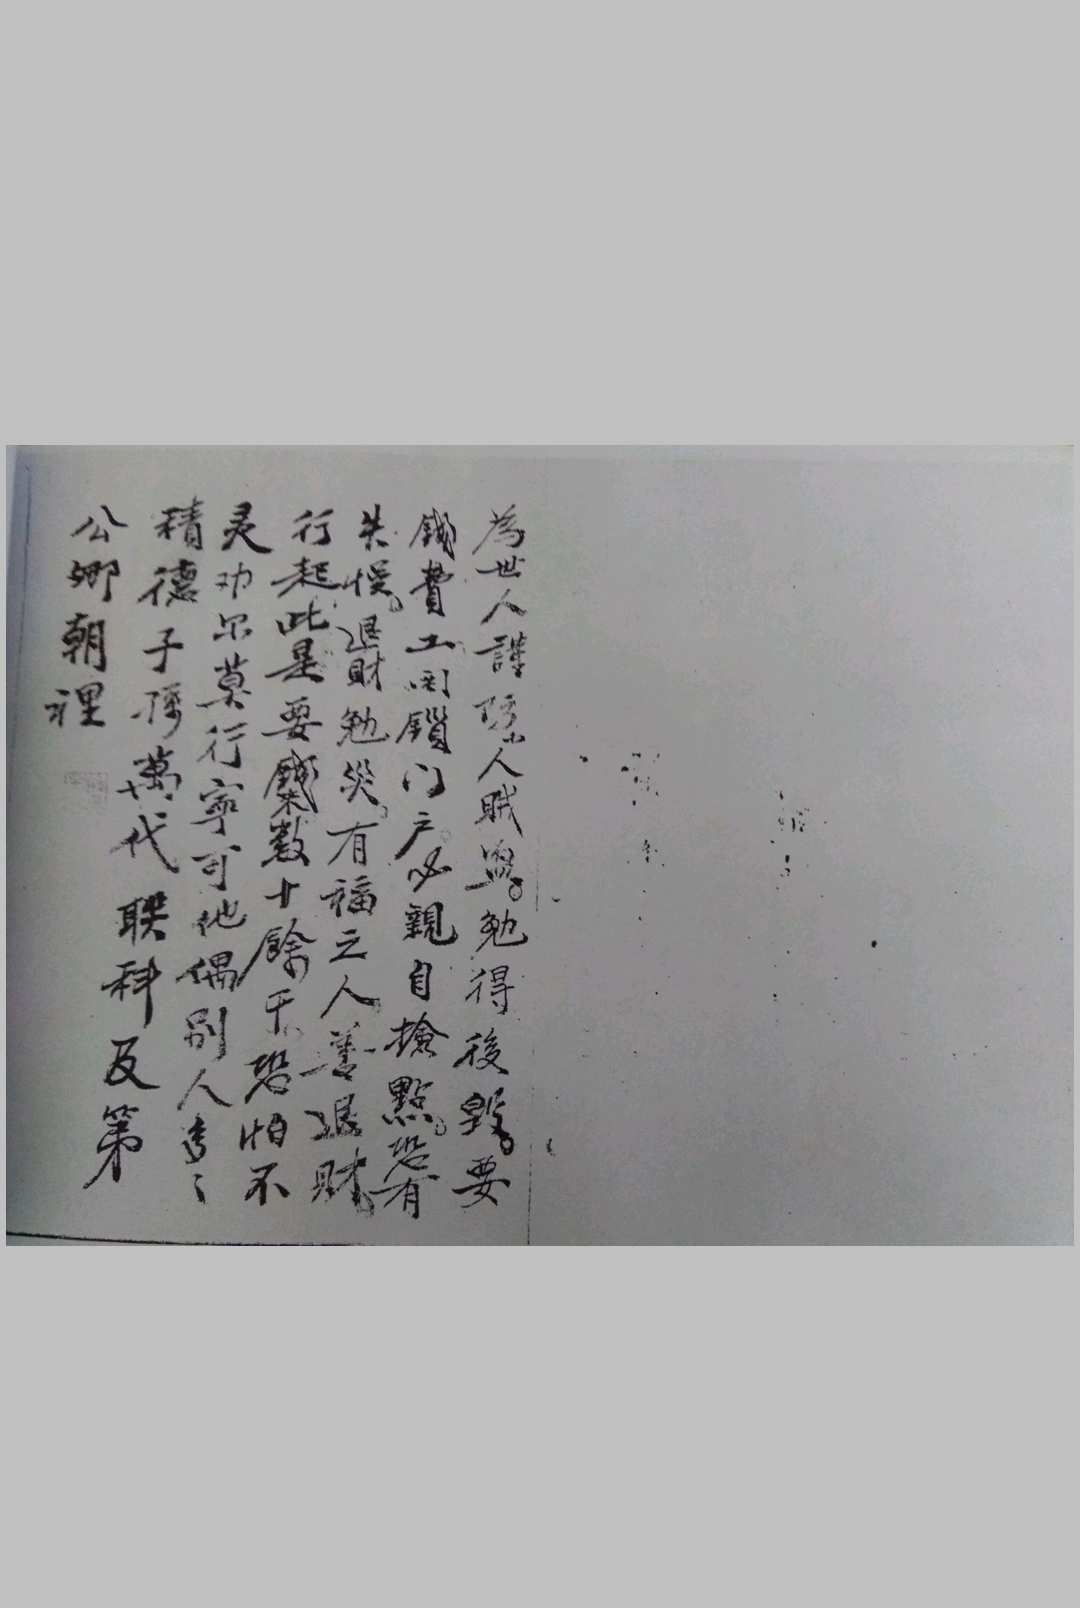 為世人謹防小人賊盜。勉得後毀。要
錢費工関鎖门户。必親自撿點。恐有
失悮。退財勉災。有福之人善退財。
行起此是要錢糜數十餘千。恐怕不
灵功尔莫行寧可他偶別人
積德子孫萬代聯科及第
公卿朝裡